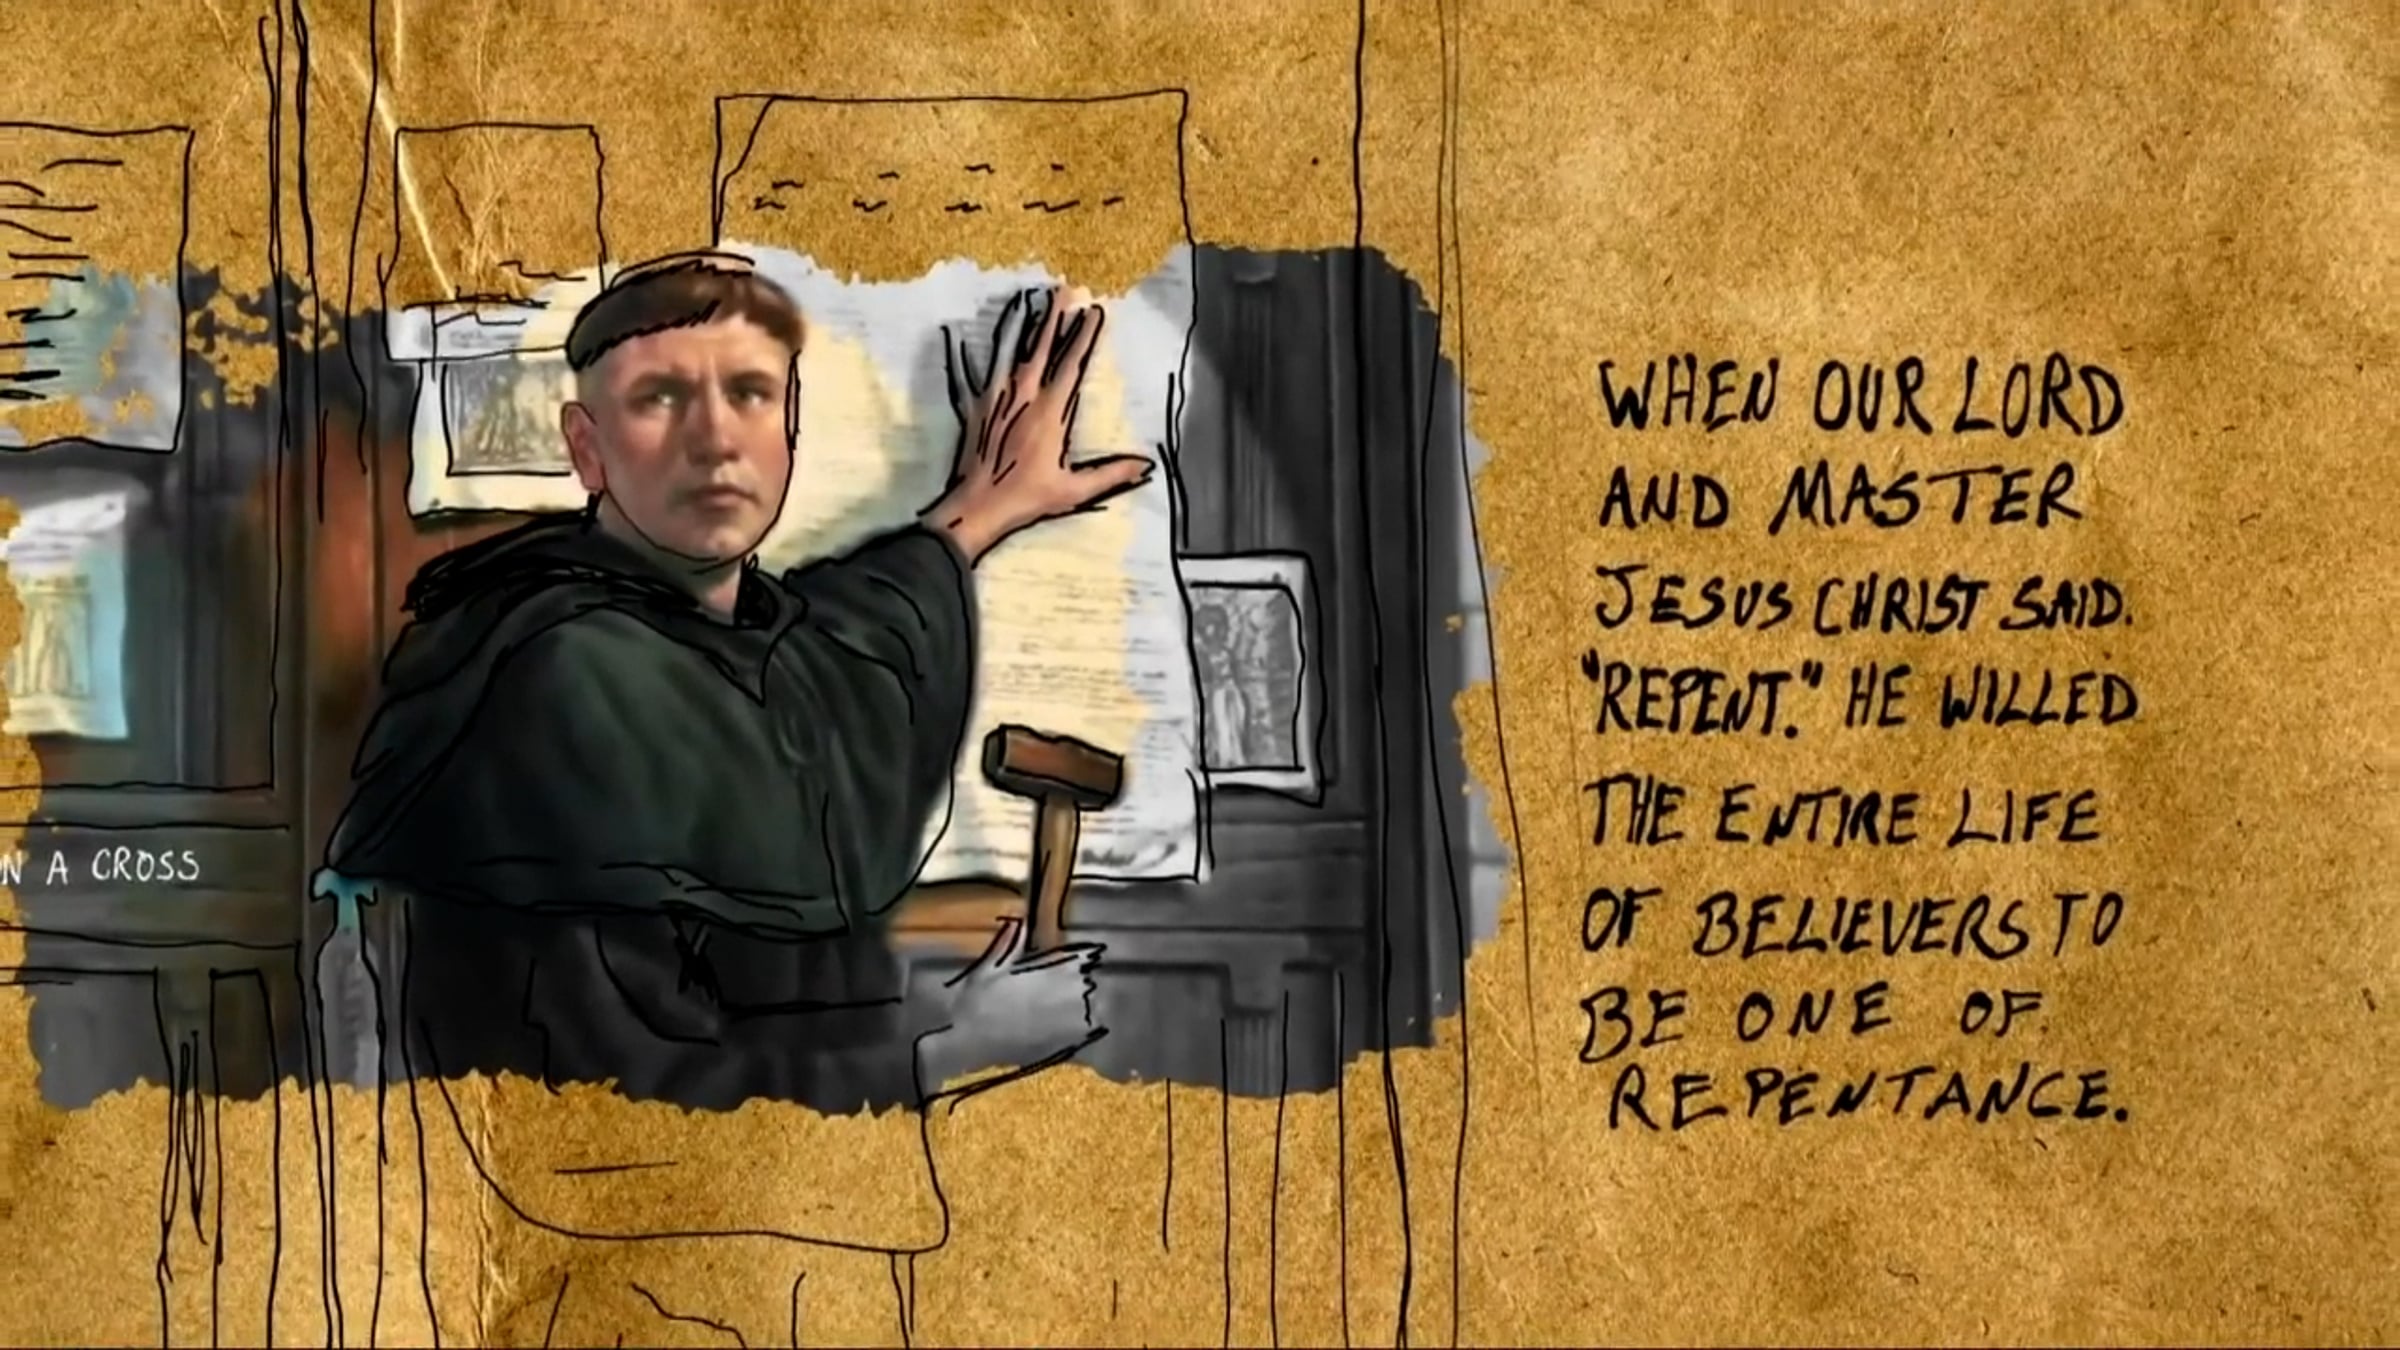 N A CROSS
WHEN OUR LORD
AND MASTER
JESUS CHRIST SAID.
"REPENT." HE WILLED
THE ENTIRE LIFE
OF BELIEVERS TO
BE ONE OF
REPENTANCE.